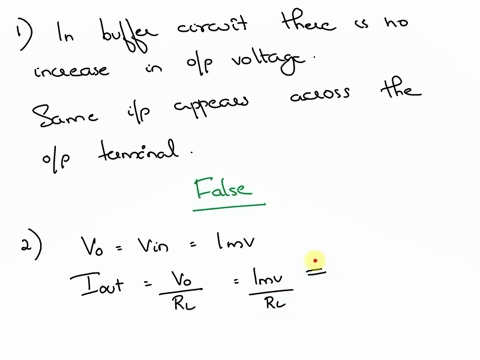 1) In buffer circuit there is no
increase in o/p voltage.
Same i/p appears across the
o/p terminal.
False
2) Vo = Vin = 1mv
Iout = Vo/RL = 1mv/RL